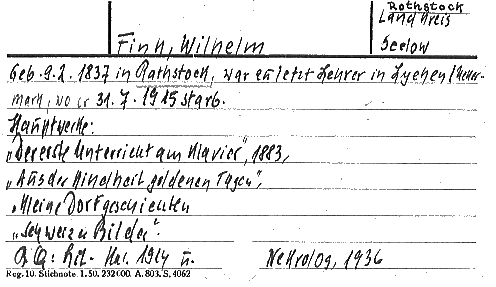 Rathstock
Landkreis
Seelow
Finn, Wilhelm
Geb. 9.2. 1837 in Rathstock, war zuletzt Lehrer in Lychen/Ucker-
mark, wo er 31.7.1915 starb.
Hauptwerke:
„Der erste Unterricht am Klavier", 1883,
„Aus der Kindheit goldenen Tagen",
„Kleine Dorfgeschichten
„Schweizer Bilder".
Lit. Kal. 1914 u. Nekrolog, 1936
Reg. 10. Stichnote. 1. 50. 232000. A. 803. S. 4062